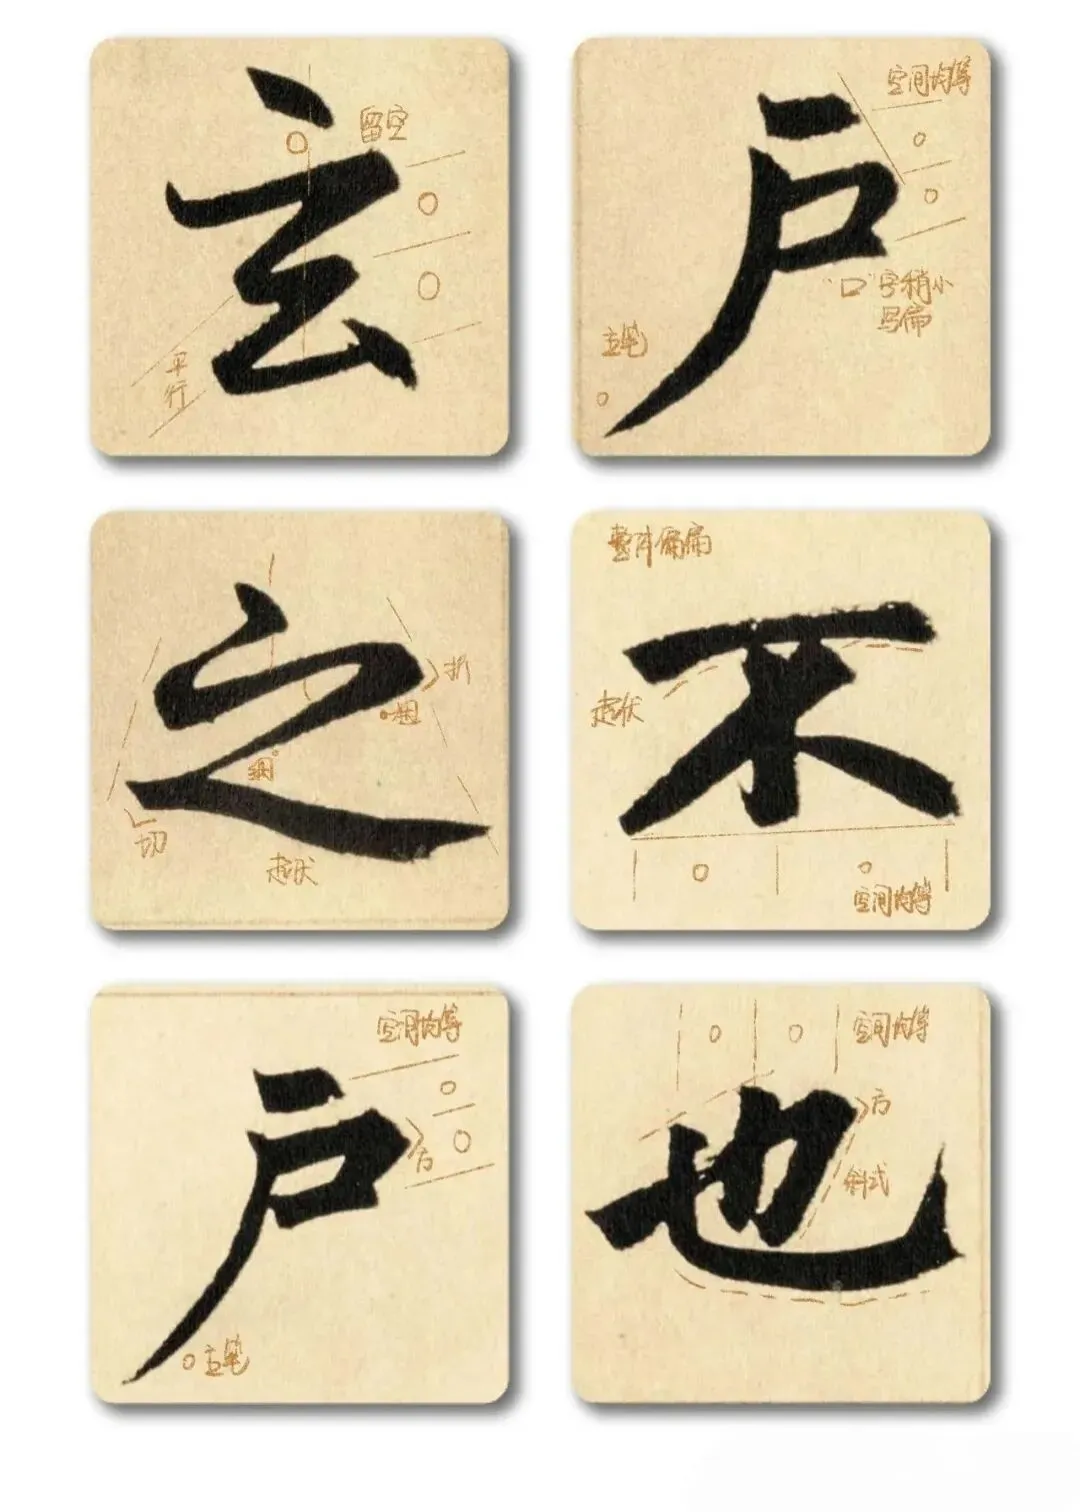 玄
留空
平
行
户
空间均等
"口"字稍小
写扁
主笔
之
折
粗
细
切
起伏
不
整体偏扁
起伏
空间均等
户
空间均等
方
主笔
也
空间均等
方
斜式